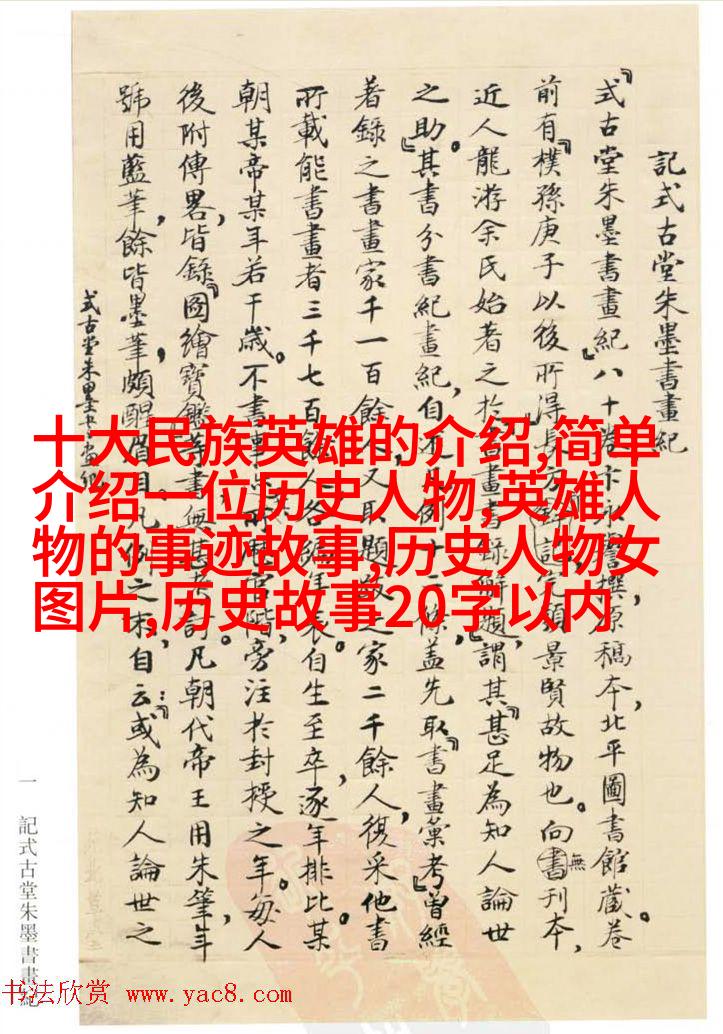 記式古堂朱墨書畫紀
『式古堂朱墨書畫紀』八十卷卞永譽撰原稿本,北平圖書館藏。卷
前有『樸孫庚子以後所得』長方景賢故物也。向無刊本,
近人龍游余氏始著之於『書畫書錄解題』,謂其『甚足為知人論世
之助。』其書分書紀畫紀,自凡例十二條,蓋先取『書畫彙考』曾經
著錄之書畫家千一百餘人,又取題跋之家二千餘人,復采他書
所載能書畫者三千七百餘人,各年表。自生至卒,逐年排比某
朝某帝某年若干歲。不書官階,旁注於封授之年。每人
後附傳畧,皆錄『圖繪寶鑑』等書無甚考訂。凡朝代帝王用朱筆,年
號用藍筆,餘皆墨筆,頗醒眉目。凡例之末,自云:『或為知人論世之
式古堂朱墨書畫紀
一 記式古堂朱墨書畫紀
十大民族英雄的介绍,简单
介绍一位历史人物,英雄人
物的事迹故事,历史人物女
图片,历史故事20字以内
书法欣赏 www.yac8.com